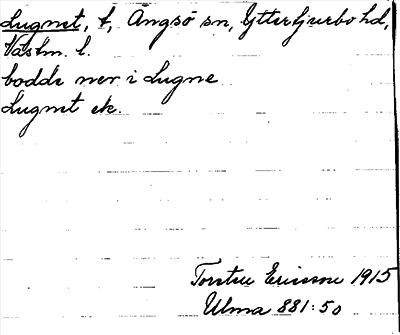 Lugnet, t, Ängsö sn, Yttertjurbo hd,
Västm. l.
bodde ner i Lugne
Lugnet ek.
Torsten Ericsson 1915
Ulma 881:50